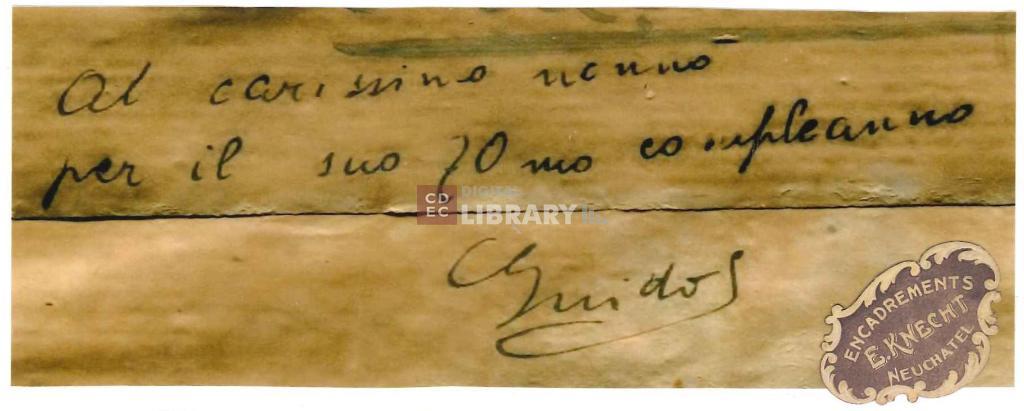 Al carissimo nonno
per il suo 70mo compleanno
CD
EC
DIGITAL
LIBRARY
Guido S
ENCADREMENTS
E. KNECHT
NEUCHATEL